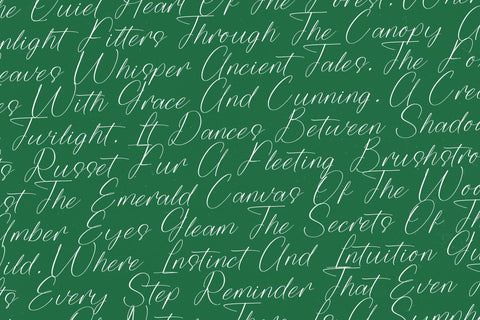 he Quiet Heart Of The Forest. Where
nlight Filters Through The Canopy
eaves Whisper Ancient Tales. The Fo
es With Grace And Cunning. A Crea
Twilight. It Dances Between Shado
ts Russet Fur A Fleeting Brushstro
st The Emerald Canvas Of The Woo
Amber Eyes Gleam The Secrets Of Th
ild. Where Instinct And Intuition Gu
ts Every Step Reminder That Even